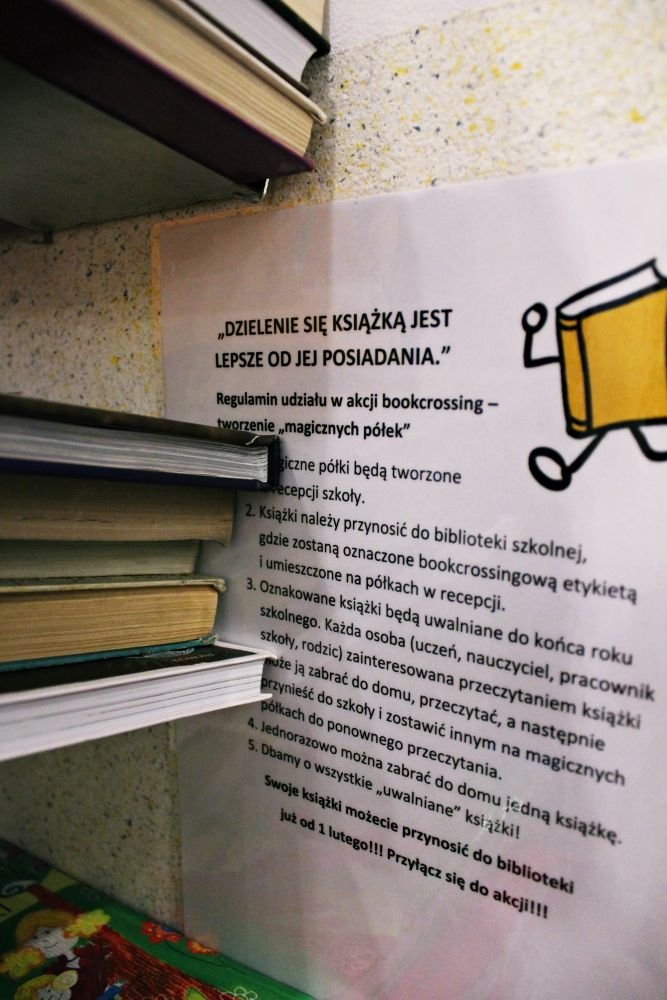 „DZIELENIE SIĘ KSIĄŻKĄ JEST
LEPSZE OD JEJ POSIADANIA.”
Regulamin udziału w akcji bookcrossing –
tworzenie „magicznych półek”
giczne półki będą tworzone
recepcji szkoły.
2. Książki należy przynosić do biblioteki szkolnej,
gdzie zostaną oznaczone bookcrossingową etykietą
i umieszczone na półkach w recepcji.
3. Oznakowane książki będą uwalniane do końca roku
szkolnego. Każda osoba (uczeń, nauczyciel, pracownik
szkoły, rodzic) zainteresowana przeczytaniem książki
może ją zabrać do domu, przeczytać, a następnie
przynieść do szkoły i zostawić innym na magicznych
półkach do ponownego przeczytania.
4. Jednorazowo można zabrać do domu jedną książkę.
5. Dbamy o wszystkie „uwalniane” książki!
Swoje książki możecie przynosić do biblioteki
już od 1 lutego!!! Przyłącz się do akcji!!!